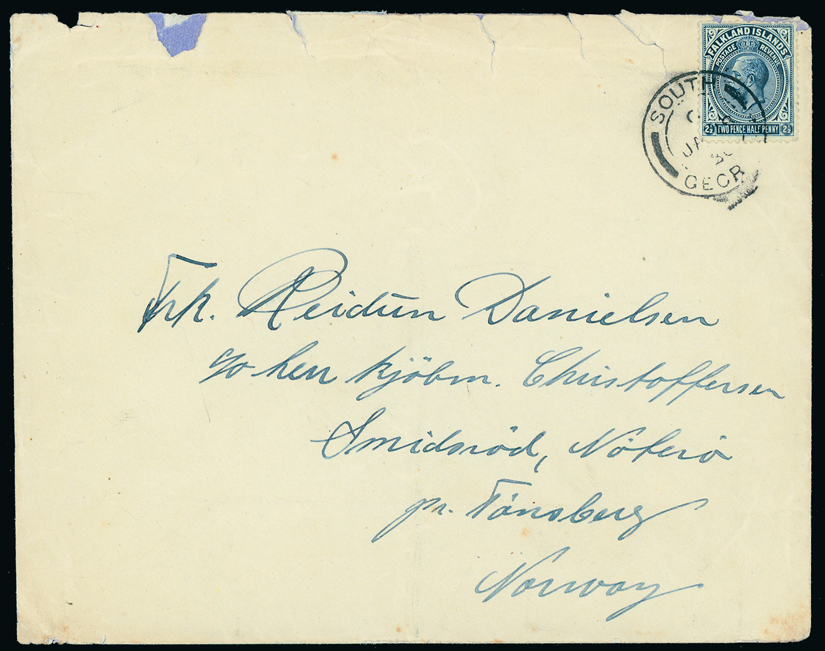 FALKLAND ISLANDS
POSTAGE REVENUE
2½ TWO PENCE HALF PENNY 2½
SOUTH
JA
GEOR
Frk. Reidun Danielsen
c/o herr kjöbm. Christoffersen
Smidsröd, Nöterö
pr. Tönsberg
Norway